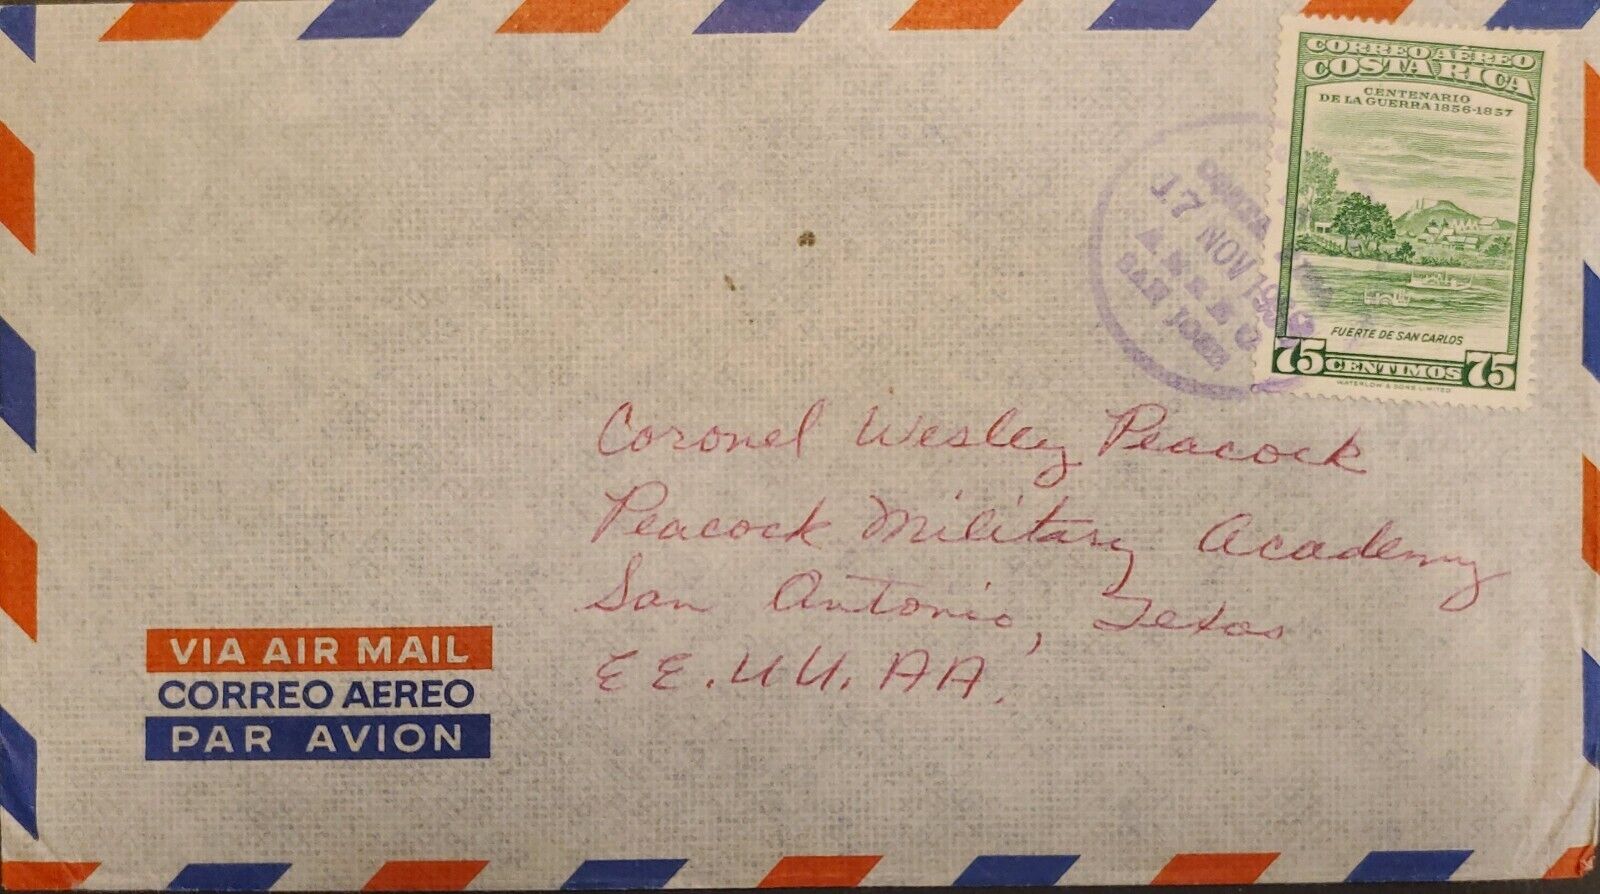 CORREO AÉREO
COSTA RICA
CENTENARIO
DE LA GUERRA 1856-1857
FUERTE DE SAN CARLOS
75 CENTIMOS 75
WATERLOW & SONS LIMITED
17 NOV 19
SAN JOSE
Coronel Wesley Peacock
Peacock Military Academy
San Antonio, Texas
EE.UU.AA.
VIA AIR MAIL
CORREO AEREO
PAR AVION